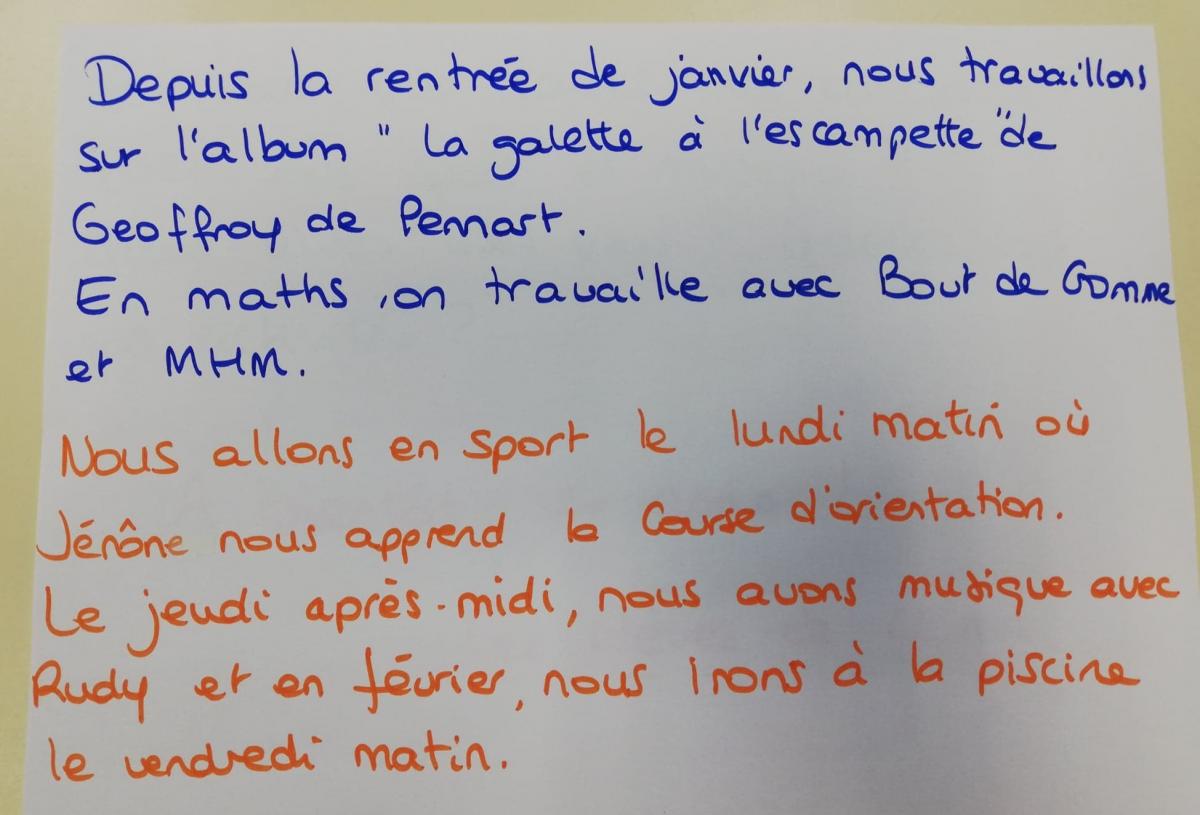 Depuis la rentrée de janvier, nous travaillons
sur l'album "La galette à l'escampette" de
Geoffroy de Pennart.
En maths, on travaille avec Bout de Gomme
et MHM.
Nous allons en sport le lundi matin où
Jérône nous apprend la Course d'orientation.
Le jeudi après-midi, nous avons musique avec
Rudy et en février, nous irons à la piscine
le vendredi matin.